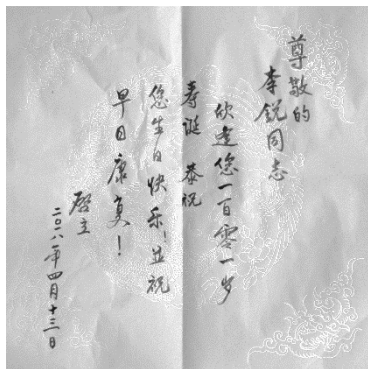 尊敬的
李锐同志
欣逢您一百零一岁
寿诞 恭祝
您生日快乐！并祝
早日康复！
启立
二〇一八年四月十三日